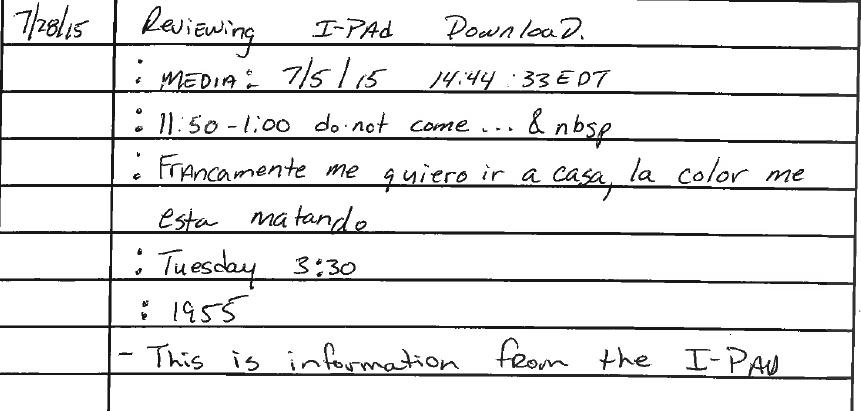 7/28/15 Reviewing I-PAd Download.
: MEDIA: 7/5/15 14:44:33 EDT
: 11:50-1:00 do not come... & nbsp
: Francamente me quiero ir a casa, la color me
esta matando
: Tuesday 3:30
: 1955
- This is information from the I-PAd